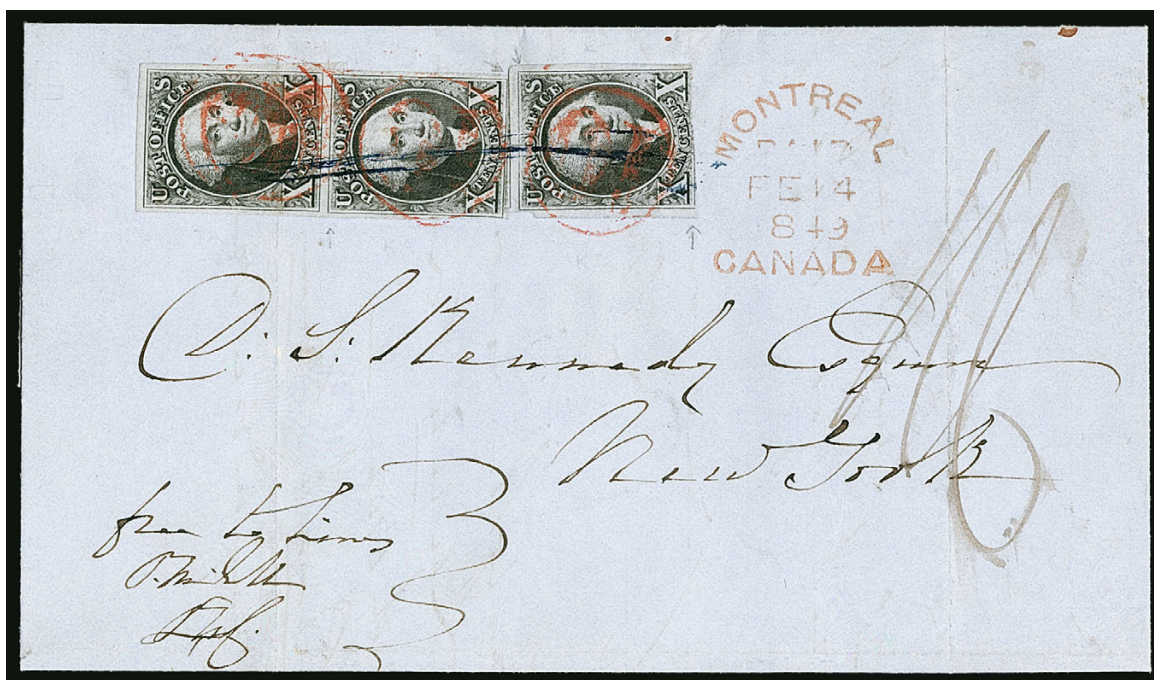 U S
POST OFFICE
X TEN CENTS X
U S
POST OFFICE
X TEN CENTS X
U S
POST OFFICE
X TEN CENTS X
MONTREAL
PAID
FE 14
849
CANADA
D. S. Kennedy Esquire
New York
free to Lines